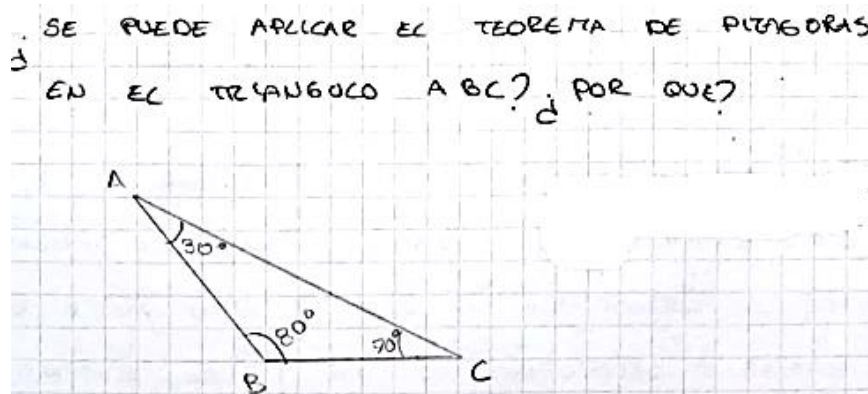 ¿SE PUEDE APLICAR EL TEOREMA DE PITAGORAS
EN EL TRIANGULO ABC? ¿POR QUE?
A
30°
80°
70°
B
C